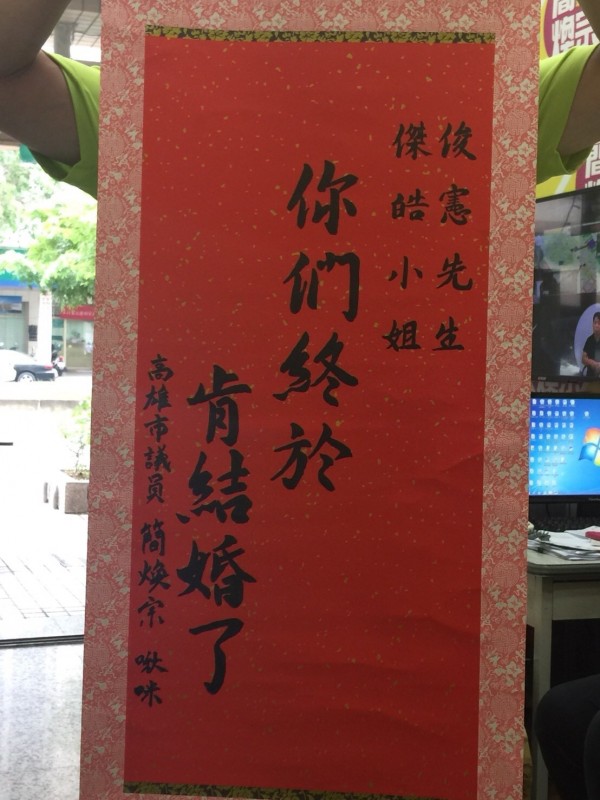 俊憲先生
傑皓小姐
你們終於
肯結婚了
高雄市議員 簡煥宗 啾咪